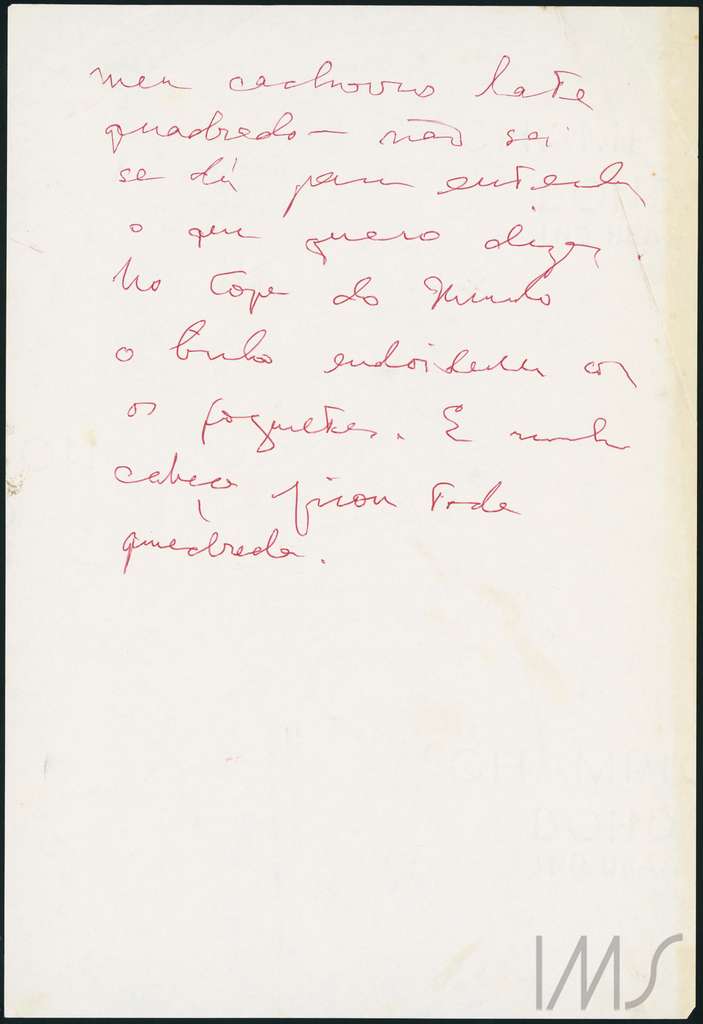 meu cachorro late
quadrado — não sei
se dá para entender
o que quero dizer.
No tope do Mundo
o bicho endoidece com
os foguetes. E minha
cabeça ficou toda
quadrada.
IMS